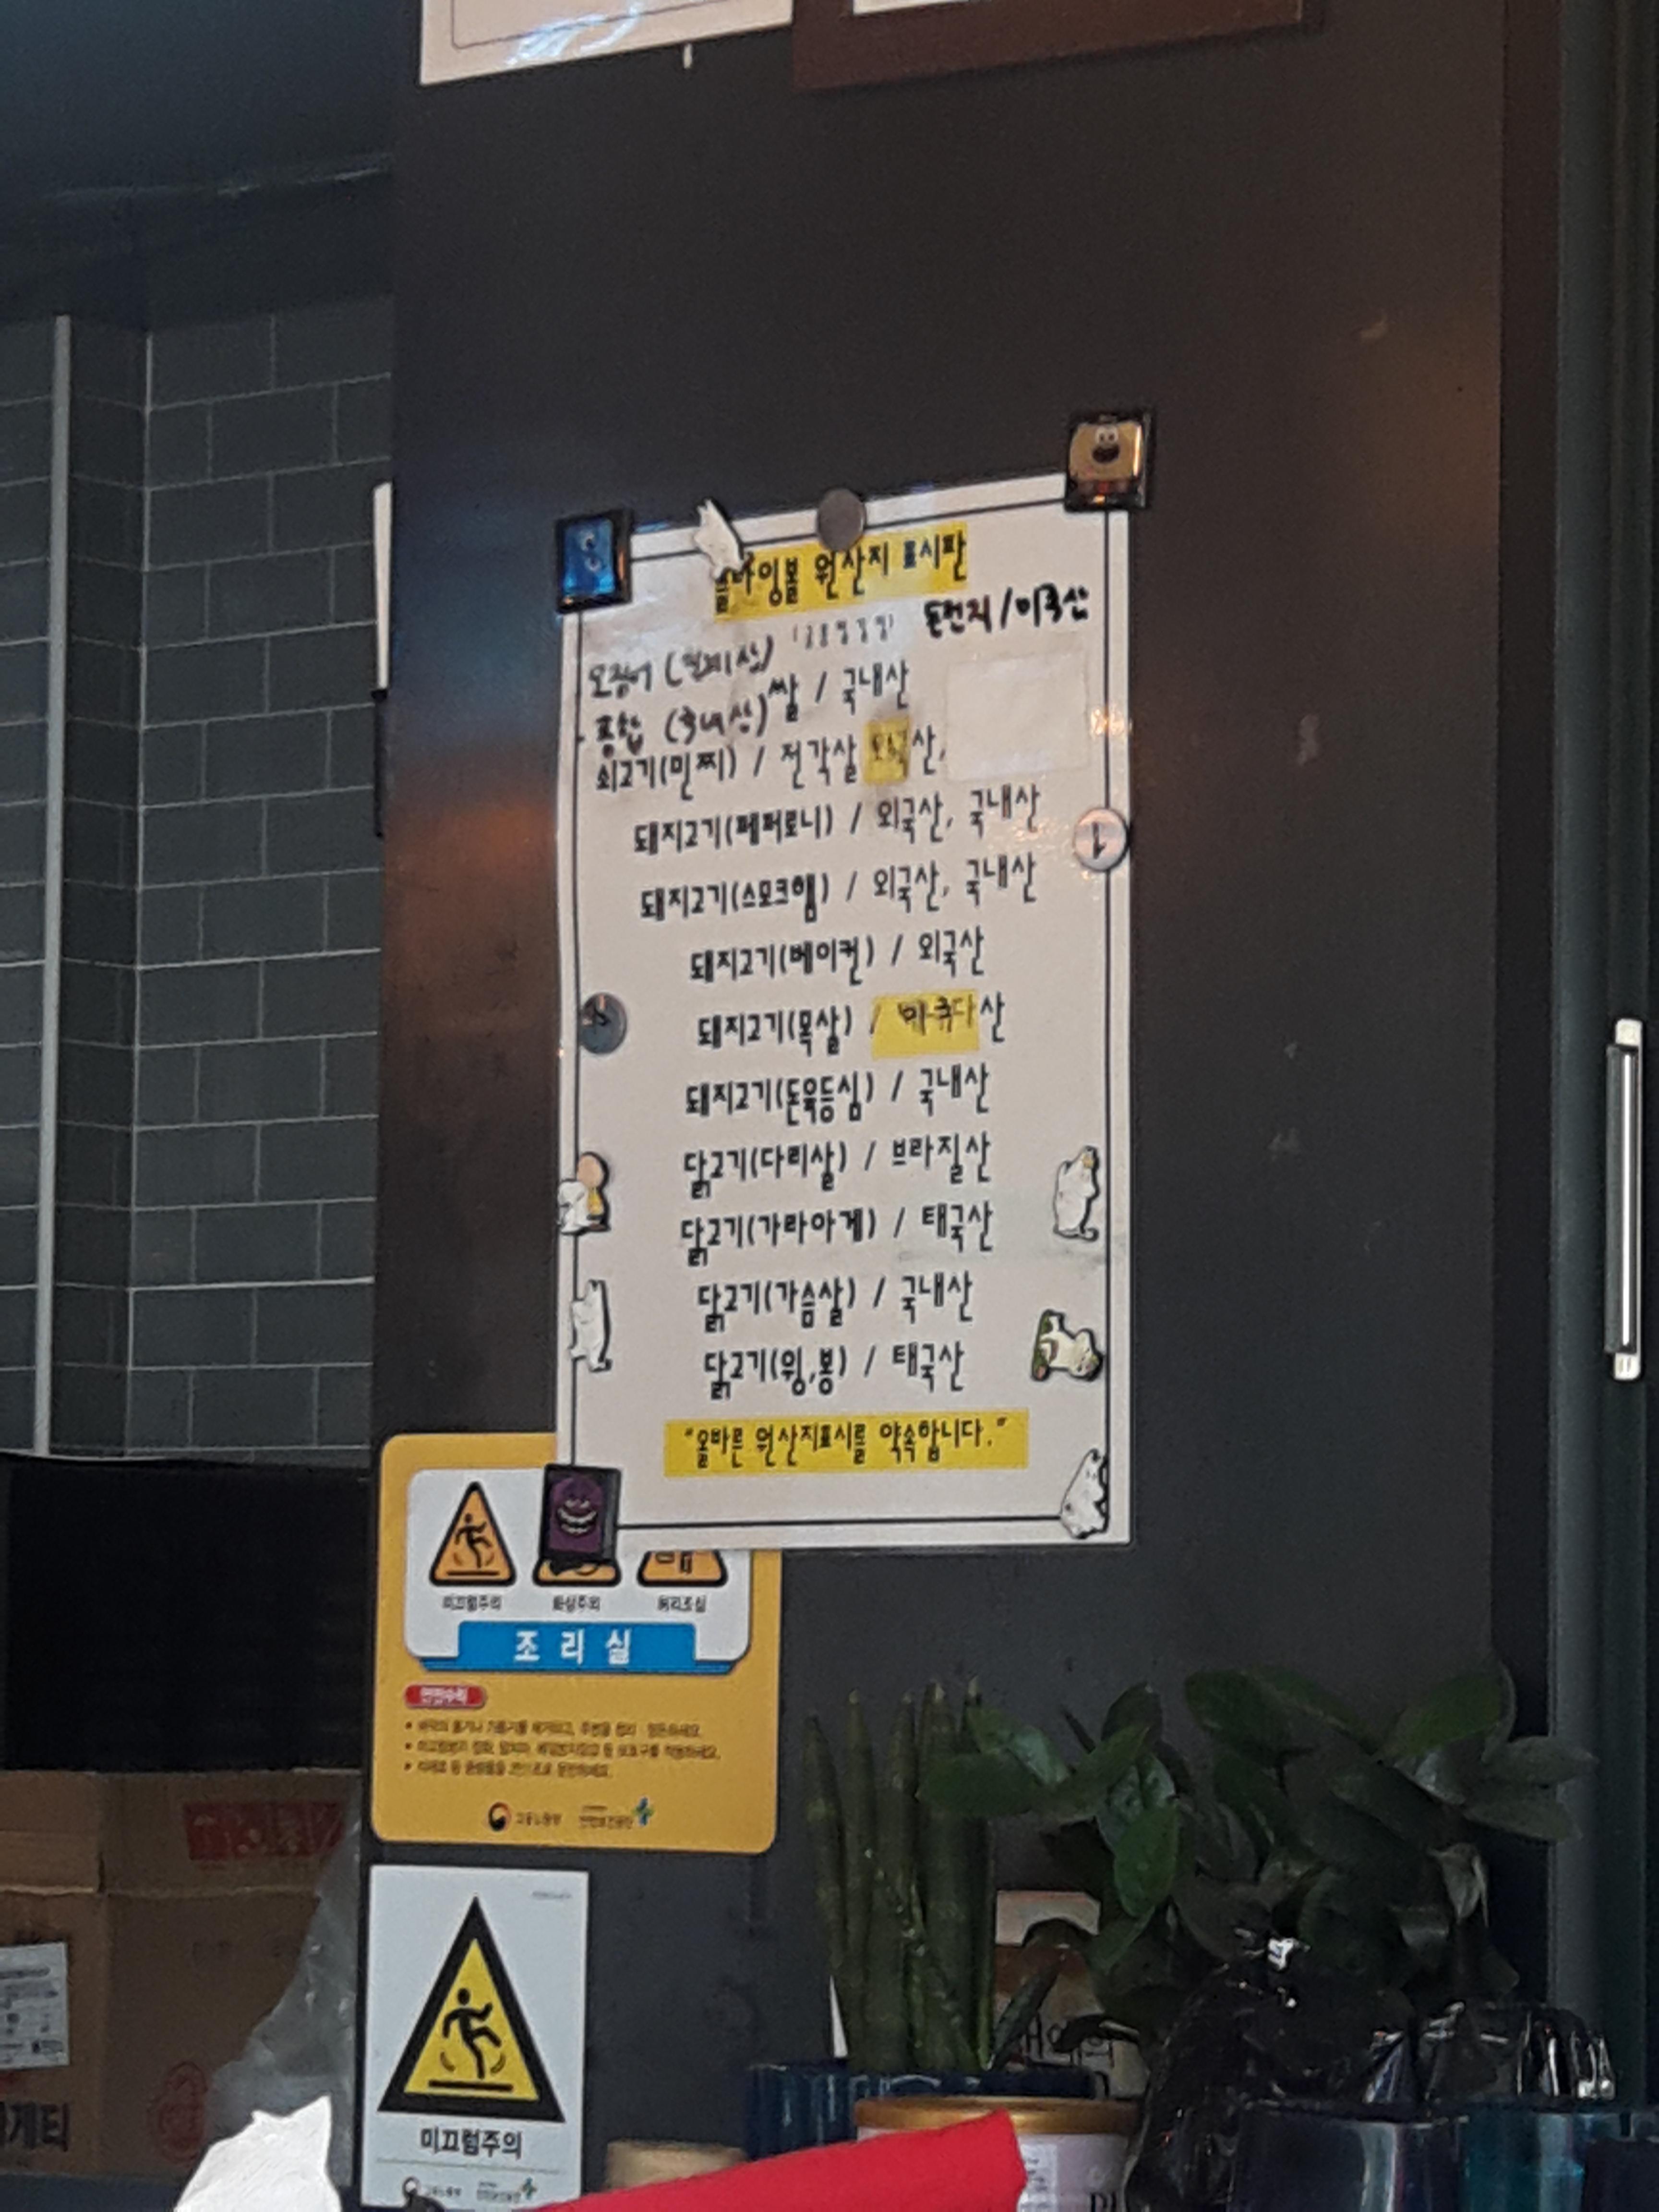 원산지 표시판
돈전지/미국산
오징어 (칠레산)
쌀 / 국내산
홍합 (국내산)
쇠고기(민찌) / 전각살 산,
돼지고기(페퍼로니) / 외국산, 국내산
돼지고기(스모크햄) / 외국산, 국내산
돼지고기(베이컨) / 외국산
돼지고기(목살) / 산
돼지고기(돈육등심) / 국내산
닭고기(다리살) / 브라질산
닭고기(가라아게) / 태국산
닭고기(가슴살) / 국내산
닭고기(윙,봉) / 태국산
"올바른 원산지표시를 약속합니다."
미끄럼주의 화상주의 허리조심
조리실
안전수칙
고용노동부 안전보건공단
미끄럼주의
고용노동부 안전보건공단